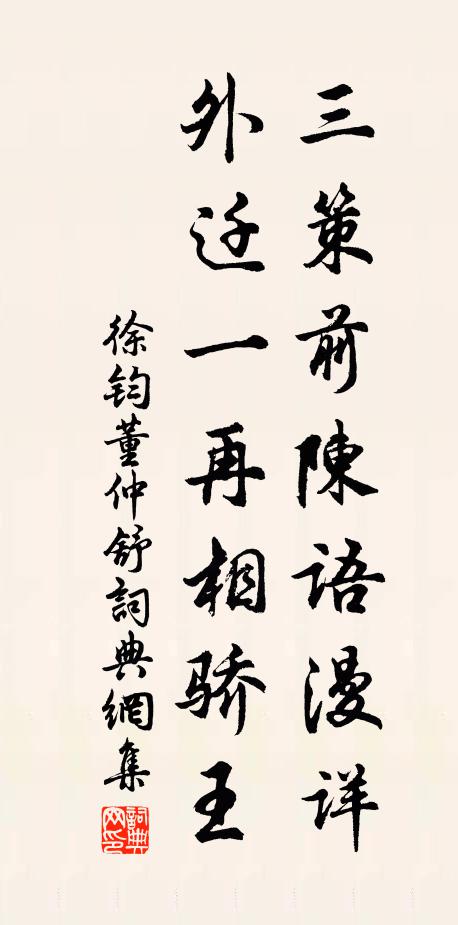 三策前陳語漫详
外迁一再相骄王
徐鈞董仲舒詞典網集
詞典网印